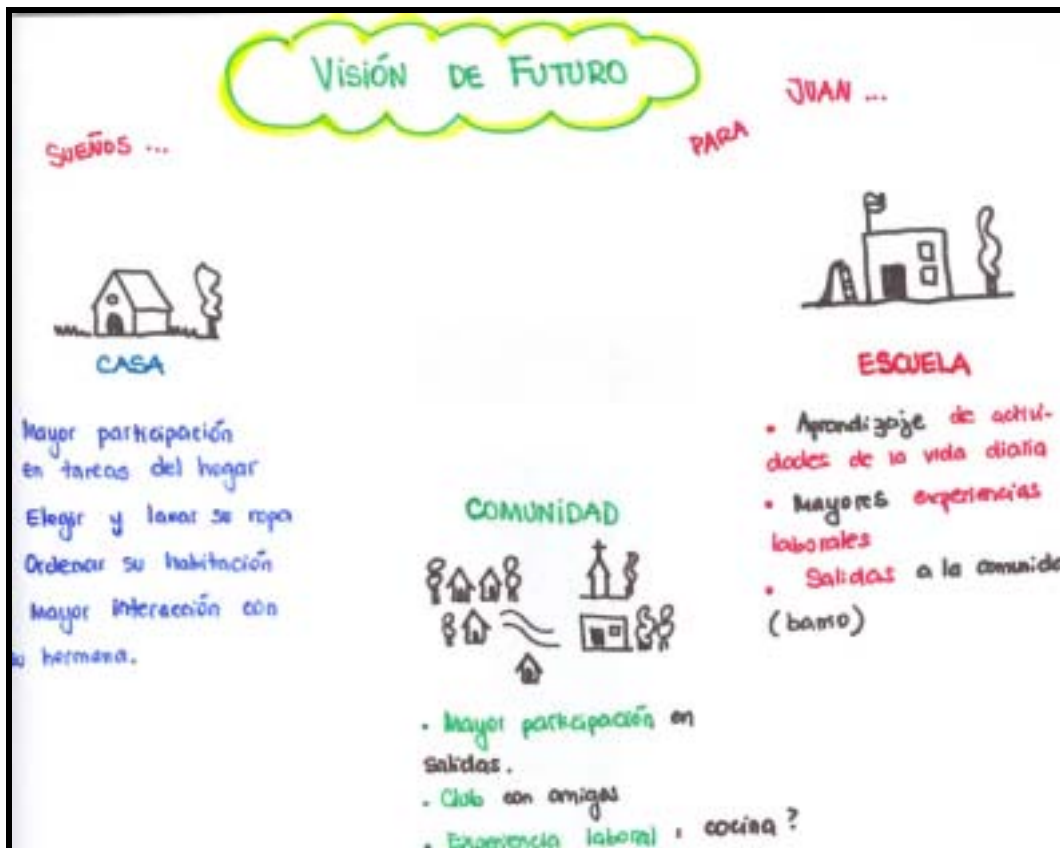 Visión de Futuro
Sueños ...
para
Juan ...
CASA
Mayor participación
en tareas del hogar
Elegir y lavar su ropa
Ordenar su habitación
Mayor interacción con
su hermana.
COMUNIDAD
• Mayor participación en
salidas.
• Club con amigos
• Experiencia laboral, cocina?
ESCUELA
• Aprendizaje de activi-
dades de la vida diaria
• Mayores experiencias
laborales
• Salidas a la comunida
(barrio)